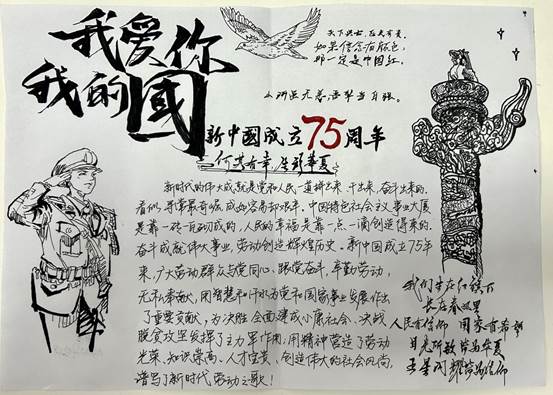 我爱你
我的國
天下兴亡，匹夫有责
如果信念有颜色，
那一定是中国红。
山河无恙
新中國成立75周年
何其有幸，生于华夏
新时代的伟大成就是党和人民一道拼出来、干出来、奋斗出来的。
看似寻常最奇崛，成如容易却艰辛。中国特色社会主义事业大厦
是靠一砖一瓦砌成的，人民的幸福是靠一点一滴创造得来的。
奋斗成就伟大事业，劳动创造辉煌历史。新中国成立75年
来，广大劳动群众与党同心、跟党奋斗，辛勤劳动，
无私奉献，用智慧和汗水为党和国家事业发展作出
了重要贡献，为决胜全面建成小康社会、决战
脱贫攻坚发挥了主力军作用；用精神营造了劳动
光荣、知识崇高、人才宝贵、创造伟大的社会风尚，
谱写了新时代劳动之歌！
我们生在红旗下
长在春风里
人民有信仰 国家有希望
目光所致皆为华夏
五星闪耀皆为信仰